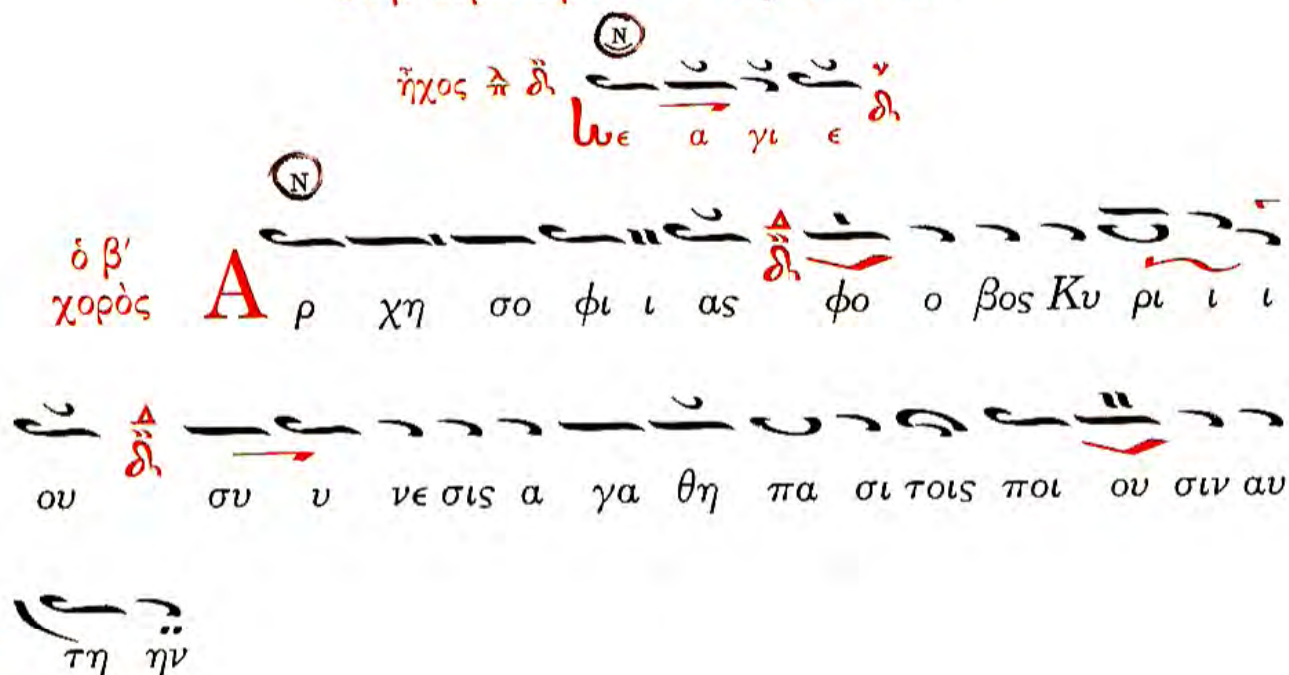 N
ἦχος πλ δ
Νε α γι ε
N
ὁ β′
χορὸς
Α ρ χη σο φι ι ας Δ φο ο βος Κυ ρι ι ι
ου Δ συ υ νε σις α γα θη πα σι τοις ποι ου σιν αυ
τη ην